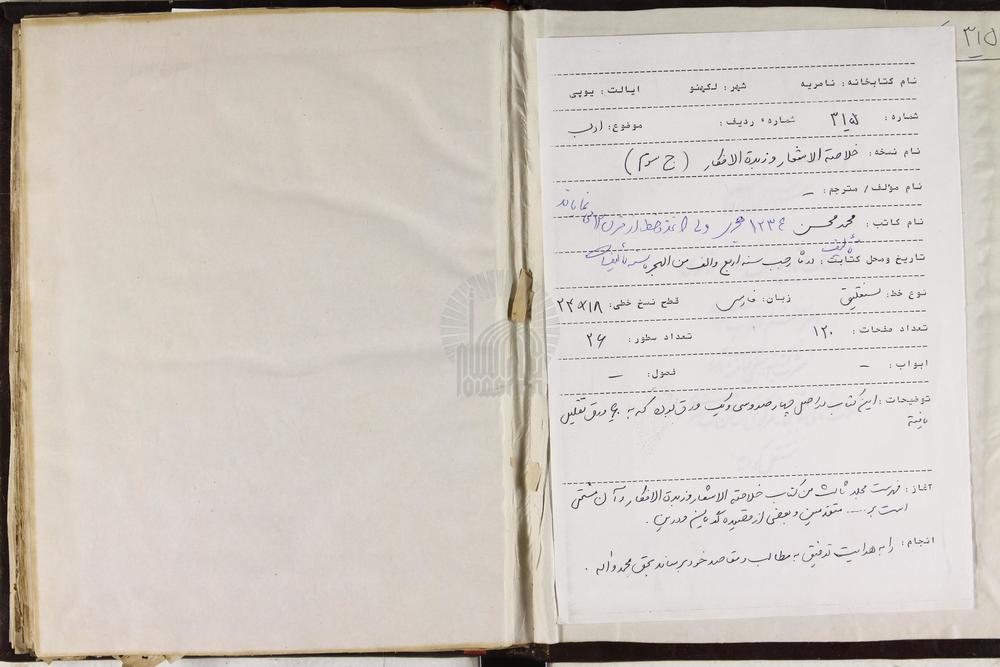 ۳۱۵
نام کتابخانه: ناصریه شهر: لکهنو ایالت: یوپی
شماره: ۳۱۵ شماره ردیف: موضوع: ادب
نام نسخه: خلاصة الاشعار و زبدة الافکار (ج سوم)
نام مؤلف/ مترجم: –
نام کاتب: محمد محسن ۱۲۳۶ هجری ولی کاغذ و خط از قرن ۱۲
تاریخ و محل کتابت: در ماه رجب سنه اربع والف من الهجره
تألیف
نوع خط: نستعلیق زبان: فارسی قطع نسخ خطی: ۱۸×۲۴
تعداد صفحات: ۱۲۰ تعداد سطور: ۲۶
ابواب: – فصول: –
توضیحات: این کتاب در اصل چهار صد و سی و یک ورق بوده که به ورق تقلیل
یافته
آغاز: فهرست مجلد ثالث من کتاب خلاصة الاشعار و زبدة الافکار و آن مشتمل
است بر ..... متقدمین و بعضی از قصیده گویان
انجام: را به هدایت توفیق به مطالب و مقاصد خود برساند بحق محمد و اله.